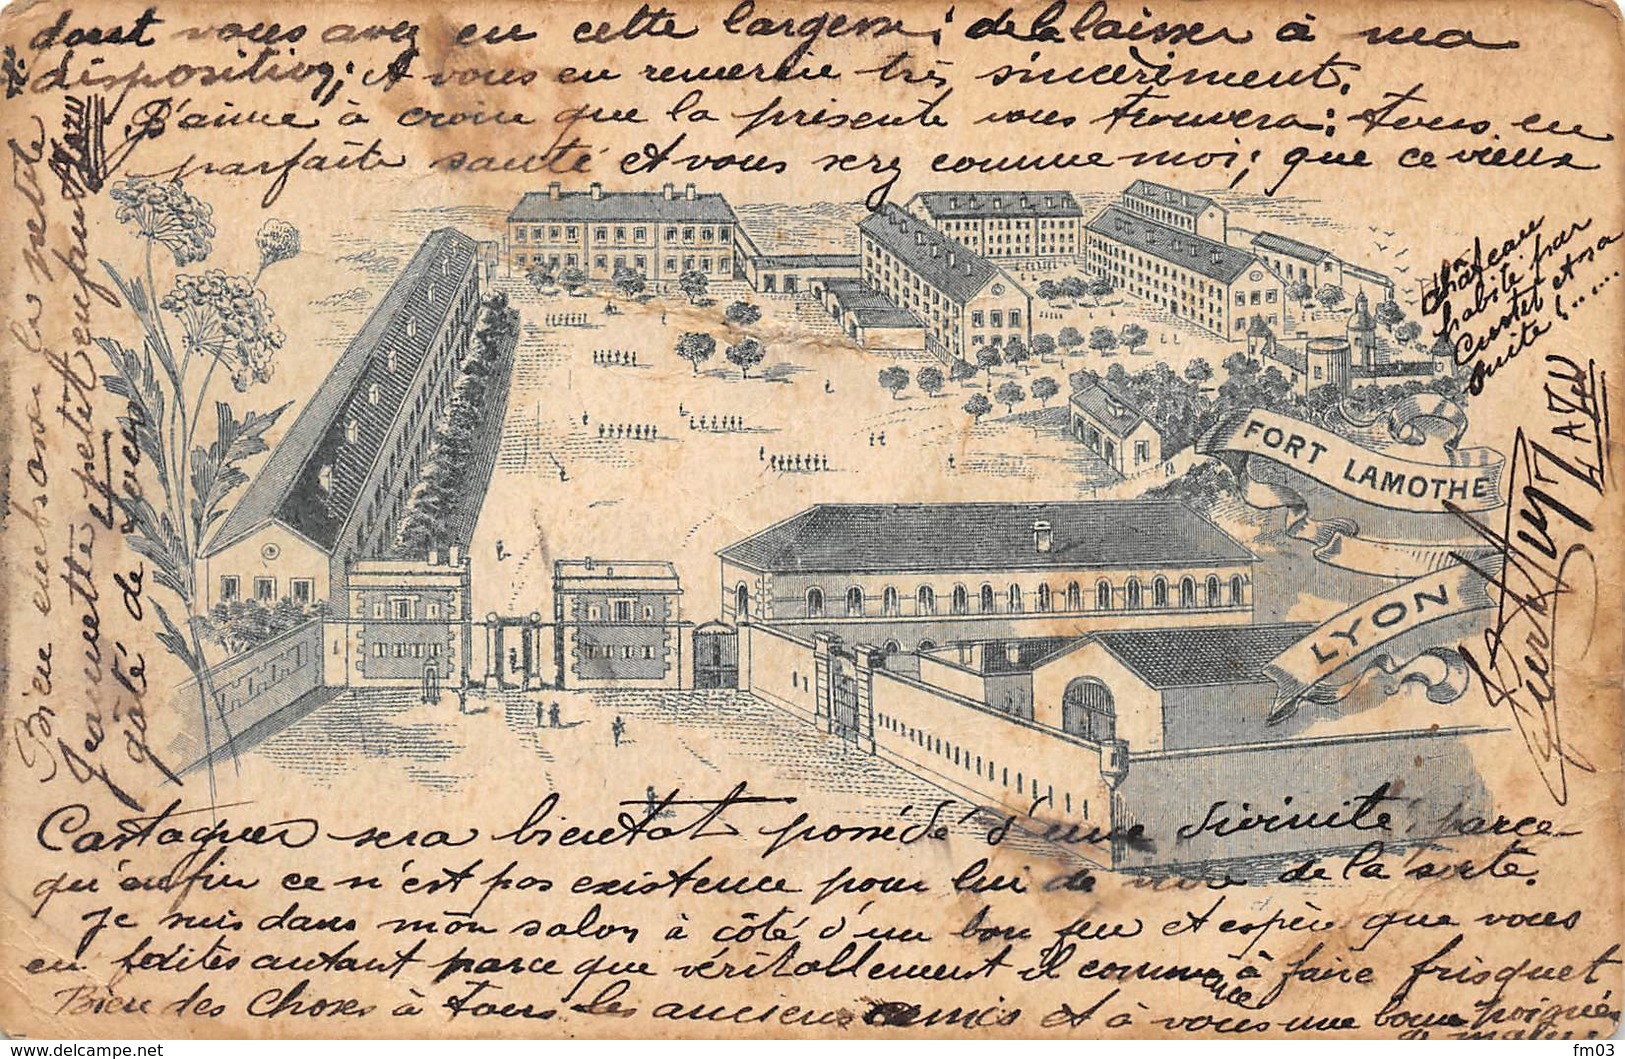 dont vous avez eu cette largesse; de la laisser à ma
disposition; et vous en remercie très sincèrement.
J'aime à croire que la présente vous trouvera: tous en
parfaite santé et vous serez comme moi; que ce vieux
château
habité par
Custet et sa
suite !......
FORT LAMOTHE
LYON
LAZU
Bien embrasser la petite
Jeannette petit enfant
gâté de Lyon
Castagner sera bientot possédé d'une divinité; parce
qu'enfin ce n'est pas existence pour lui de vivre de la sorte.
Je suis dans mon salon à côté d'un bon feu et espère que vous
en faites autant parce que véritallement il commence à faire frisquet
Bien des choses à tous les anciens amis et à vous une bonne poignée
de main
fm03